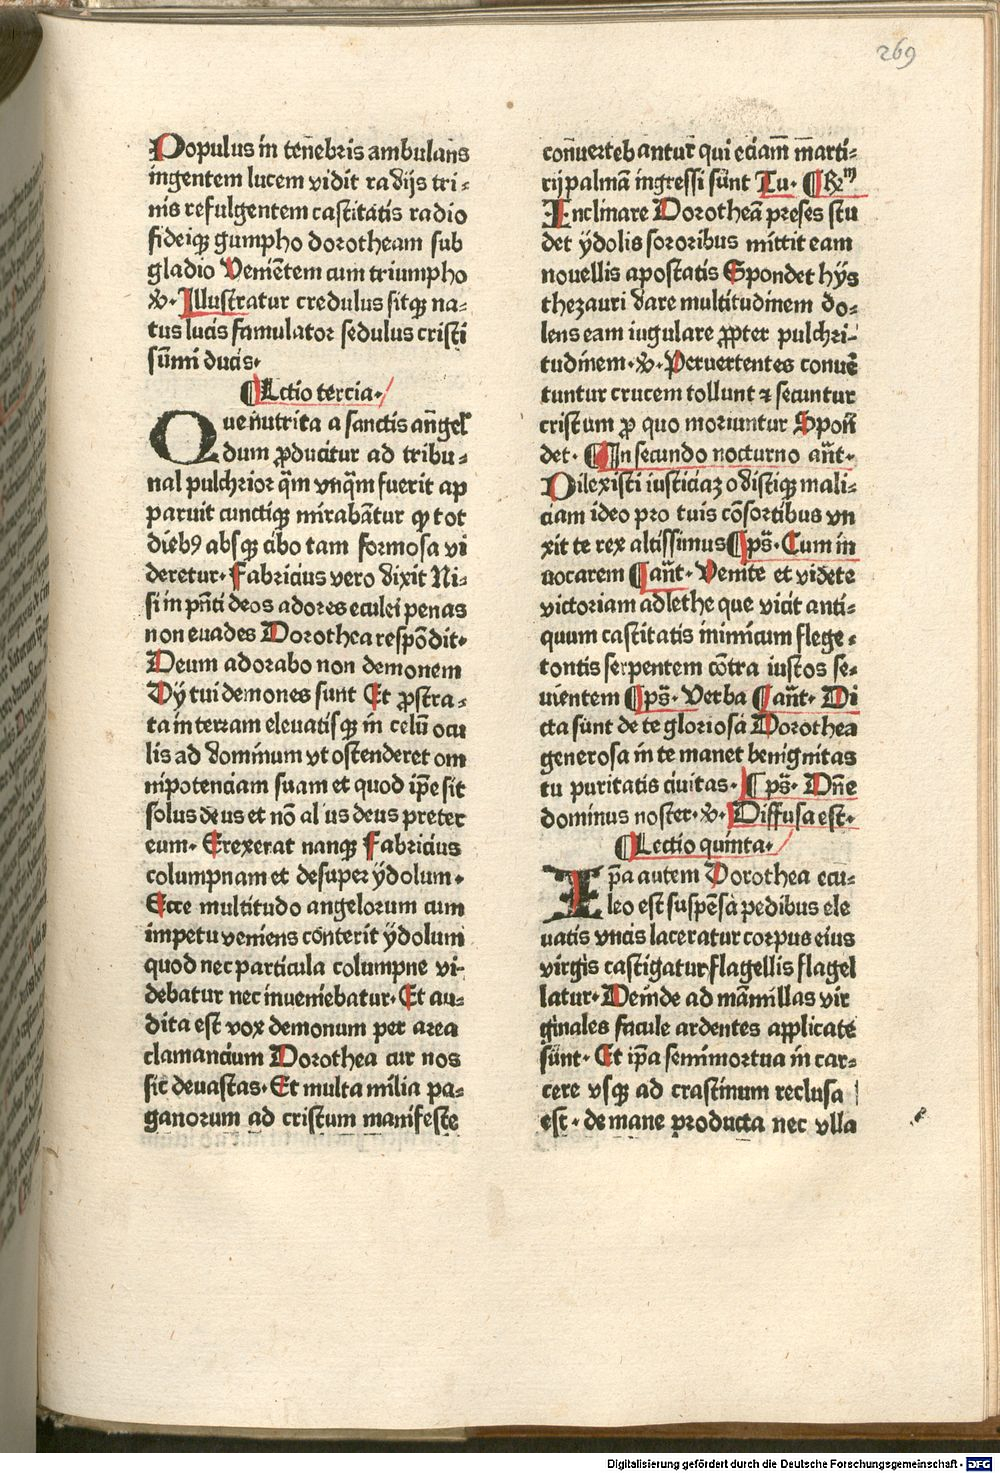 269
Populus in tenebris ambulans
ingentem lucem vidit radijs tri-
nis refulgentem castitatis radio
fideiqꝫ gumpho dorotheam sub
gladio Veniētem cum triumpho
℣. Illustratur credulus sitqꝫ na-
tus lucis famulator sedulus cristi
sūmi ducis.
¶Lctio tercia.
Que nutrita a sanctis angel'
dum ꝓducitur ad tribu-
nal pulchrior q̄m vnq̄m fuerit ap
paruit cunctiqꝫ mirabātur qꝫ tot
diebꝰ absqꝫ cibo tam formosa vi
deretur. Fabricius vero dixit Ni-
si in pn̄ti deos adores eculei penas
non euades Dorothea respōdit.
Deum adorabo non demonem
Dÿ tui demones sunt Et ꝓstra-
ta in terram eleuatisqꝫ in celū ocu
lis ad dominum vt ostenderet om
nipotenciam suam et quod ip̄e sit
solus deus et nō alius deus preter
eum. Erexerat nanqꝫ Fabricius
columpnam et desuper ÿdolum.
Ecce multitudo angelorum cum
impetu veniens conterit ÿdolum
quod nec particula columpne vi-
debatur nec inueniebatur. Et au-
dita est vox demonum per area
clamancium Dorothea cur nos
sic deuastas. Et multa milia pa-
ganorum ad cristum manifeste
conuertebantur qui eciam marti-
rij palmā ingressi sūnt Tu. ¶Rm
Inclinare Dorotheā preses stu
det ÿdolis sororibus mittit eam
nouellis apostatis Spondet hÿs
thezauri dare multitudinem do-
lens eam iugulare ꝓpter pulchri-
tudinem. ℣. Peruertentes conuē
tuntur crucem tollunt ⁊ secuntur
cristum ꝓ quo moriuntur Spon̄
det. ¶In secundo nocturno an̄t.
Dilexisti iusticiaꝫ odistiqꝫ mali-
ciam ideo pro tuis cōsortibus vn
xit te rex altissimus ¶ps̄. Cum in
uocarem ¶an̄t. Venite et videte
victoriam adlethe que vicit anti-
quum castitatis inimicum flege-
tontis serpentem cōtra iustos se-
uientem ¶ps̄. Verba ¶an̄t. Di
cta sunt de te gloriosa Dorothea
generosa in te manet benignitas
tu puritatis ciuitas. ¶ps̄. Dn̄e
dominus noster. ℣. Diffusa est.
¶Lectio quinta.
Ip̄a autem Dorothea ecu-
leo est suspēsa pedibus ele
uatis vncis laceratur corpus eius
virgis castigatur flagellis flagel
latur. Deinde ad māmillas vir
ginales facule ardentes applicate
sūnt. Et ip̄a semimortua in car-
cere vsqꝫ ad crastinum reclusa
est. de mane producta nec vlla
Digitalisierung gefördert durch die Deutsche Forschungsgemeinschaft - DFG